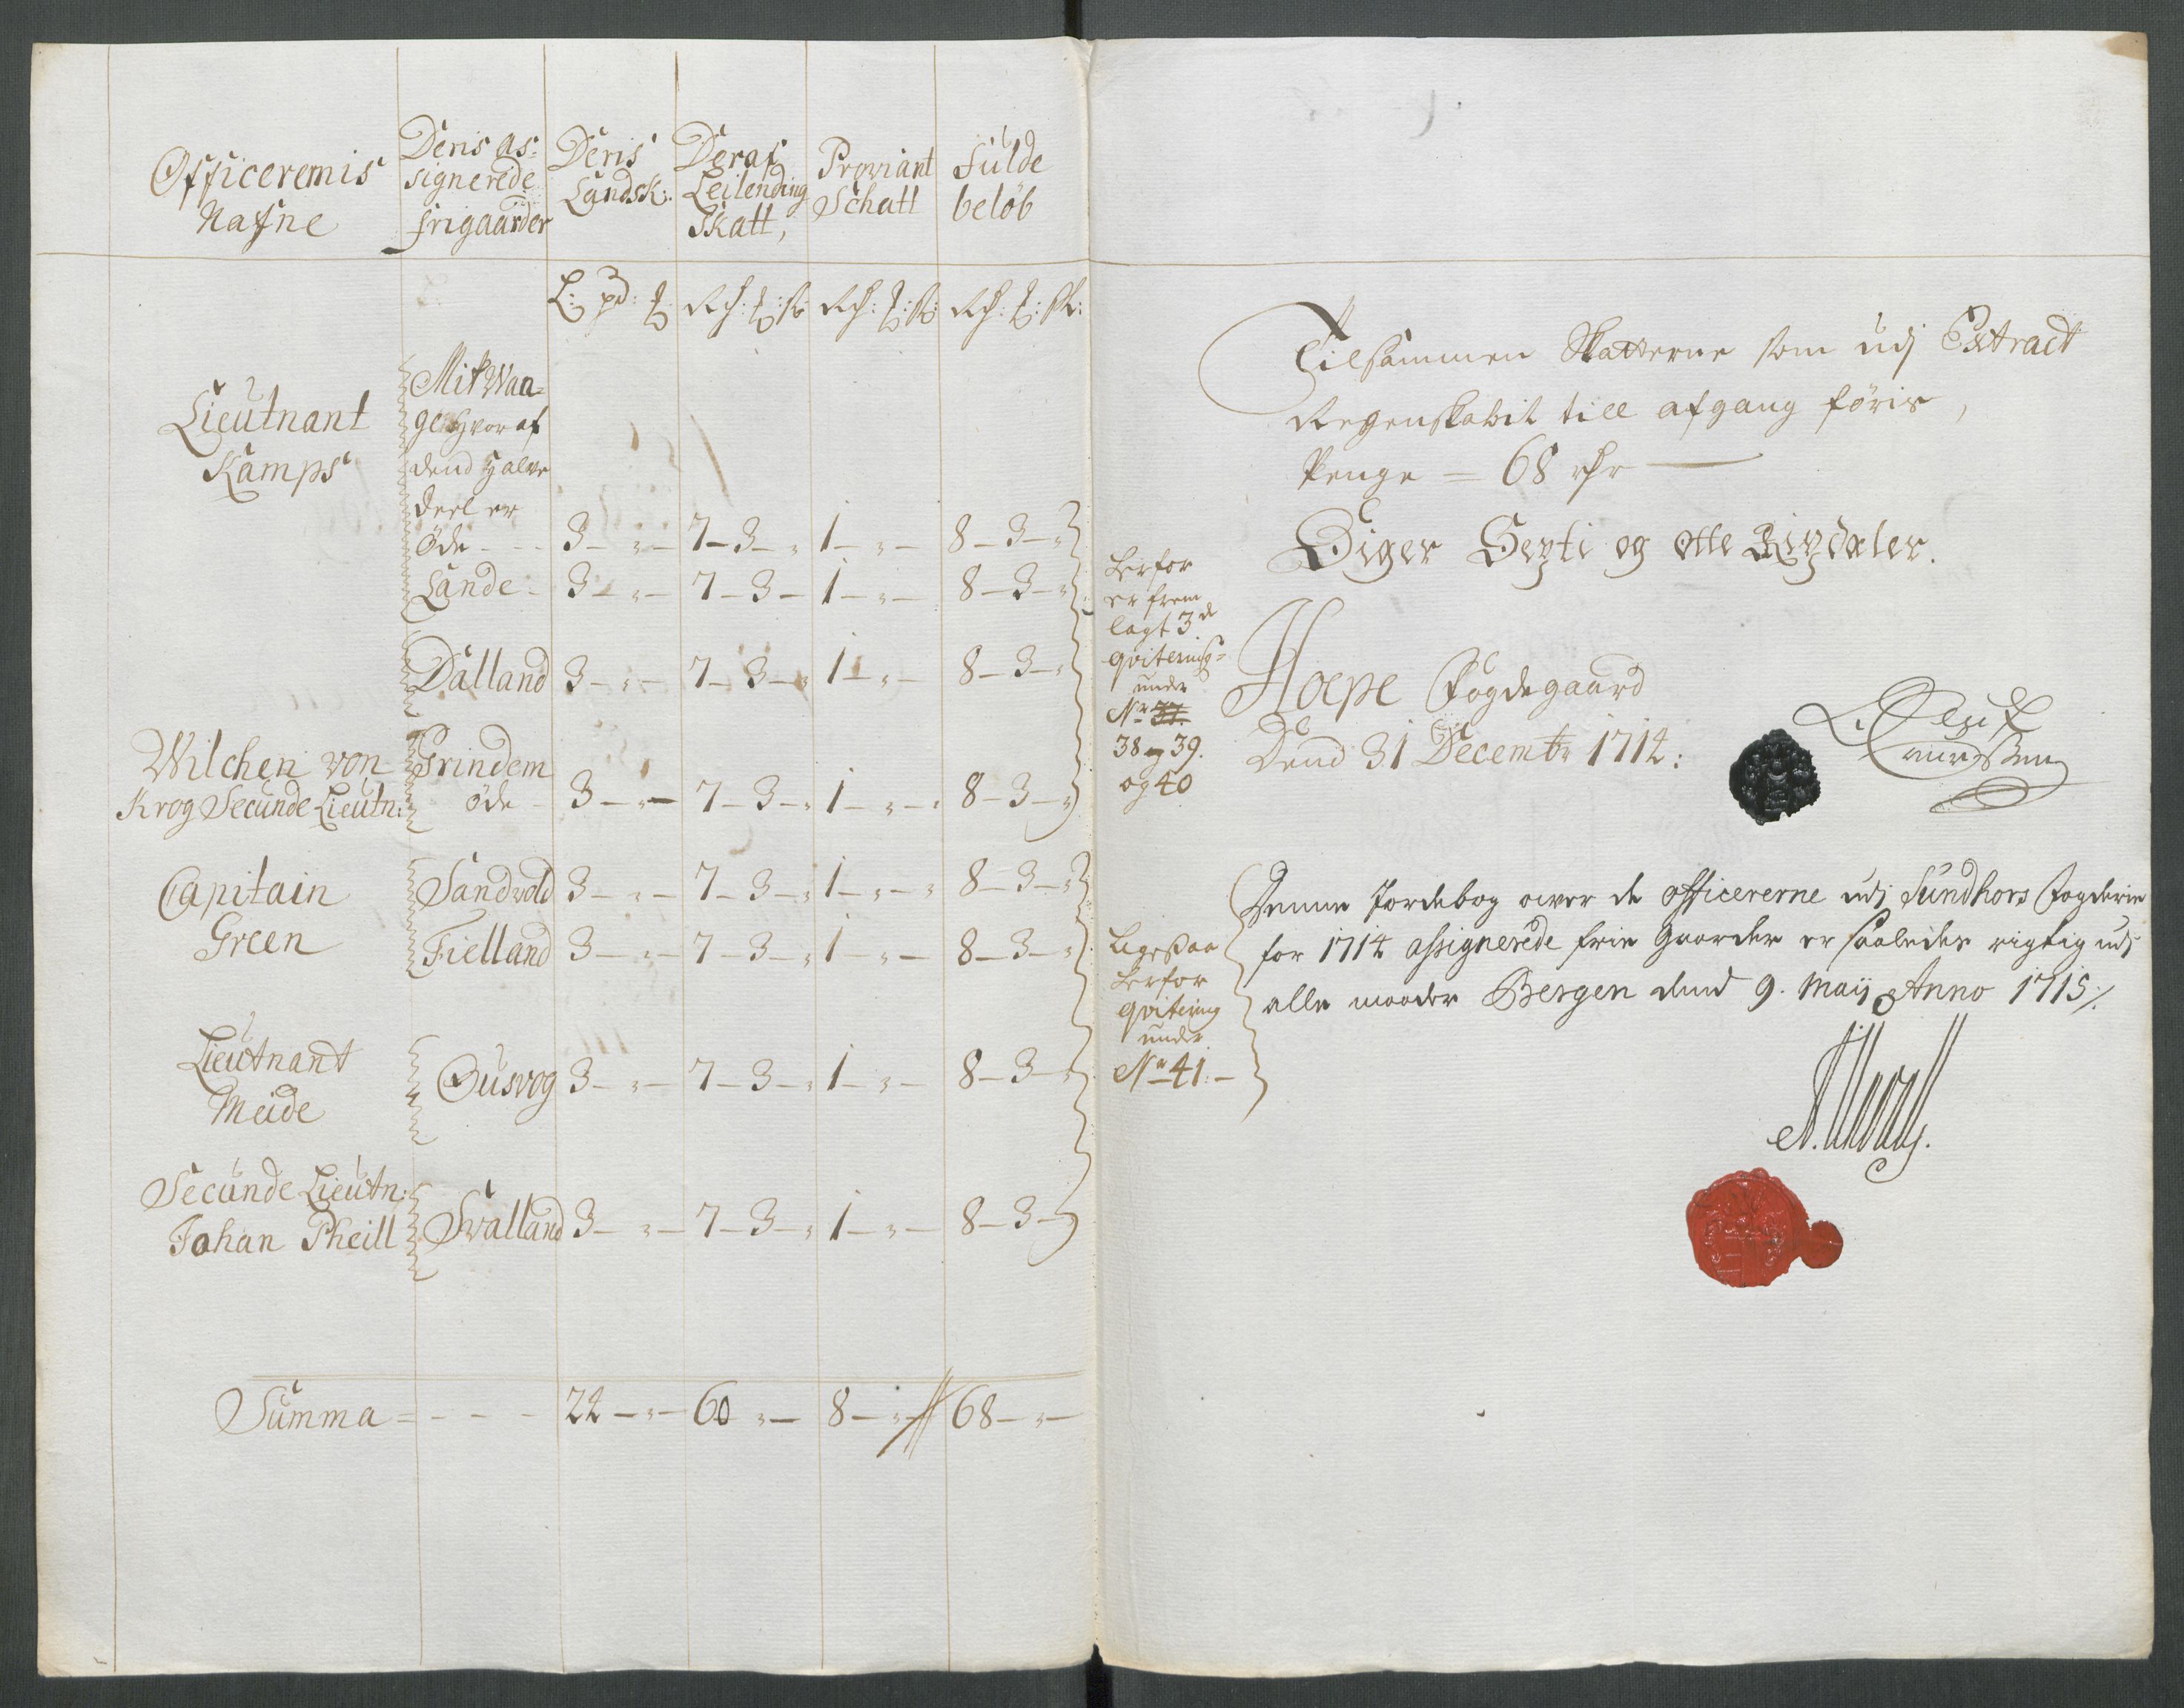 Officerernis
Nafne
Deris as=
signerede
frigaarder
Deris
Landsk:
Deraf
Leilending
Skatt,
Proviant
Schatt
Fulde
beløb
L: pd:
Lieutnant
Kamps
Mit Wan=
ge hvoraf
dend halve
deel er
öde - - - 3 - „ - 7 - 3 - „ 1 - „ - 8 - 3 - „
Lande - 3 - „ - 7 - 3 - 1 - „ - 8 - 3 - „
Dalland 3 - „ - 7 - 3 - „ 1 - „ - 8 - 3 - „
Wilchen von
Krog Secunde Lieutn:
Grindem
öde - 3 - „ - 7 - 3 - „ 1 - „ - 8 - 3 - „
Capitain
Green
Sandvold 3 - „ - 7 - 3 - „ 1 - „ - 8 - 3 - „
Fielland 3 - „ - 7 - 3 - „ 1 - „ - 8 - 3 - „
Lieutnant
Meide
Busvog 3 - „ - 7 - 3 - „ 1 - „ - 8 - 3 - „
Secunde Lieutn:
Johan Pheill
Svalland 3 - „ - 7 - 3 - „ 1 - „ - 8 - 3 - „
Summa = - - - 24 - „ - 60 „ - 8 - „ - 68 - „ -
herfor
er frem
lagt 3de
qvitering=
under
No 37.
38 og 39.
og 40
Ligesaa
herfor
qvitering
under
No 41. -
Tilsammen Skatterne som udj Extract
Regenskabit till afgang føris,
Penge = 68 rdr
Siger Sexti og otte Rixdaler.
Hoepe Fogdegaard
Dend 31 Decembr 1714:
Denne Jordebog over de officererne udj Sundhors Fogderie
for 1714 assignerede frie Gaarder er saaledes rigtig udj
alle maader Bergen dend 9. Maij Anno 1715 ⁒